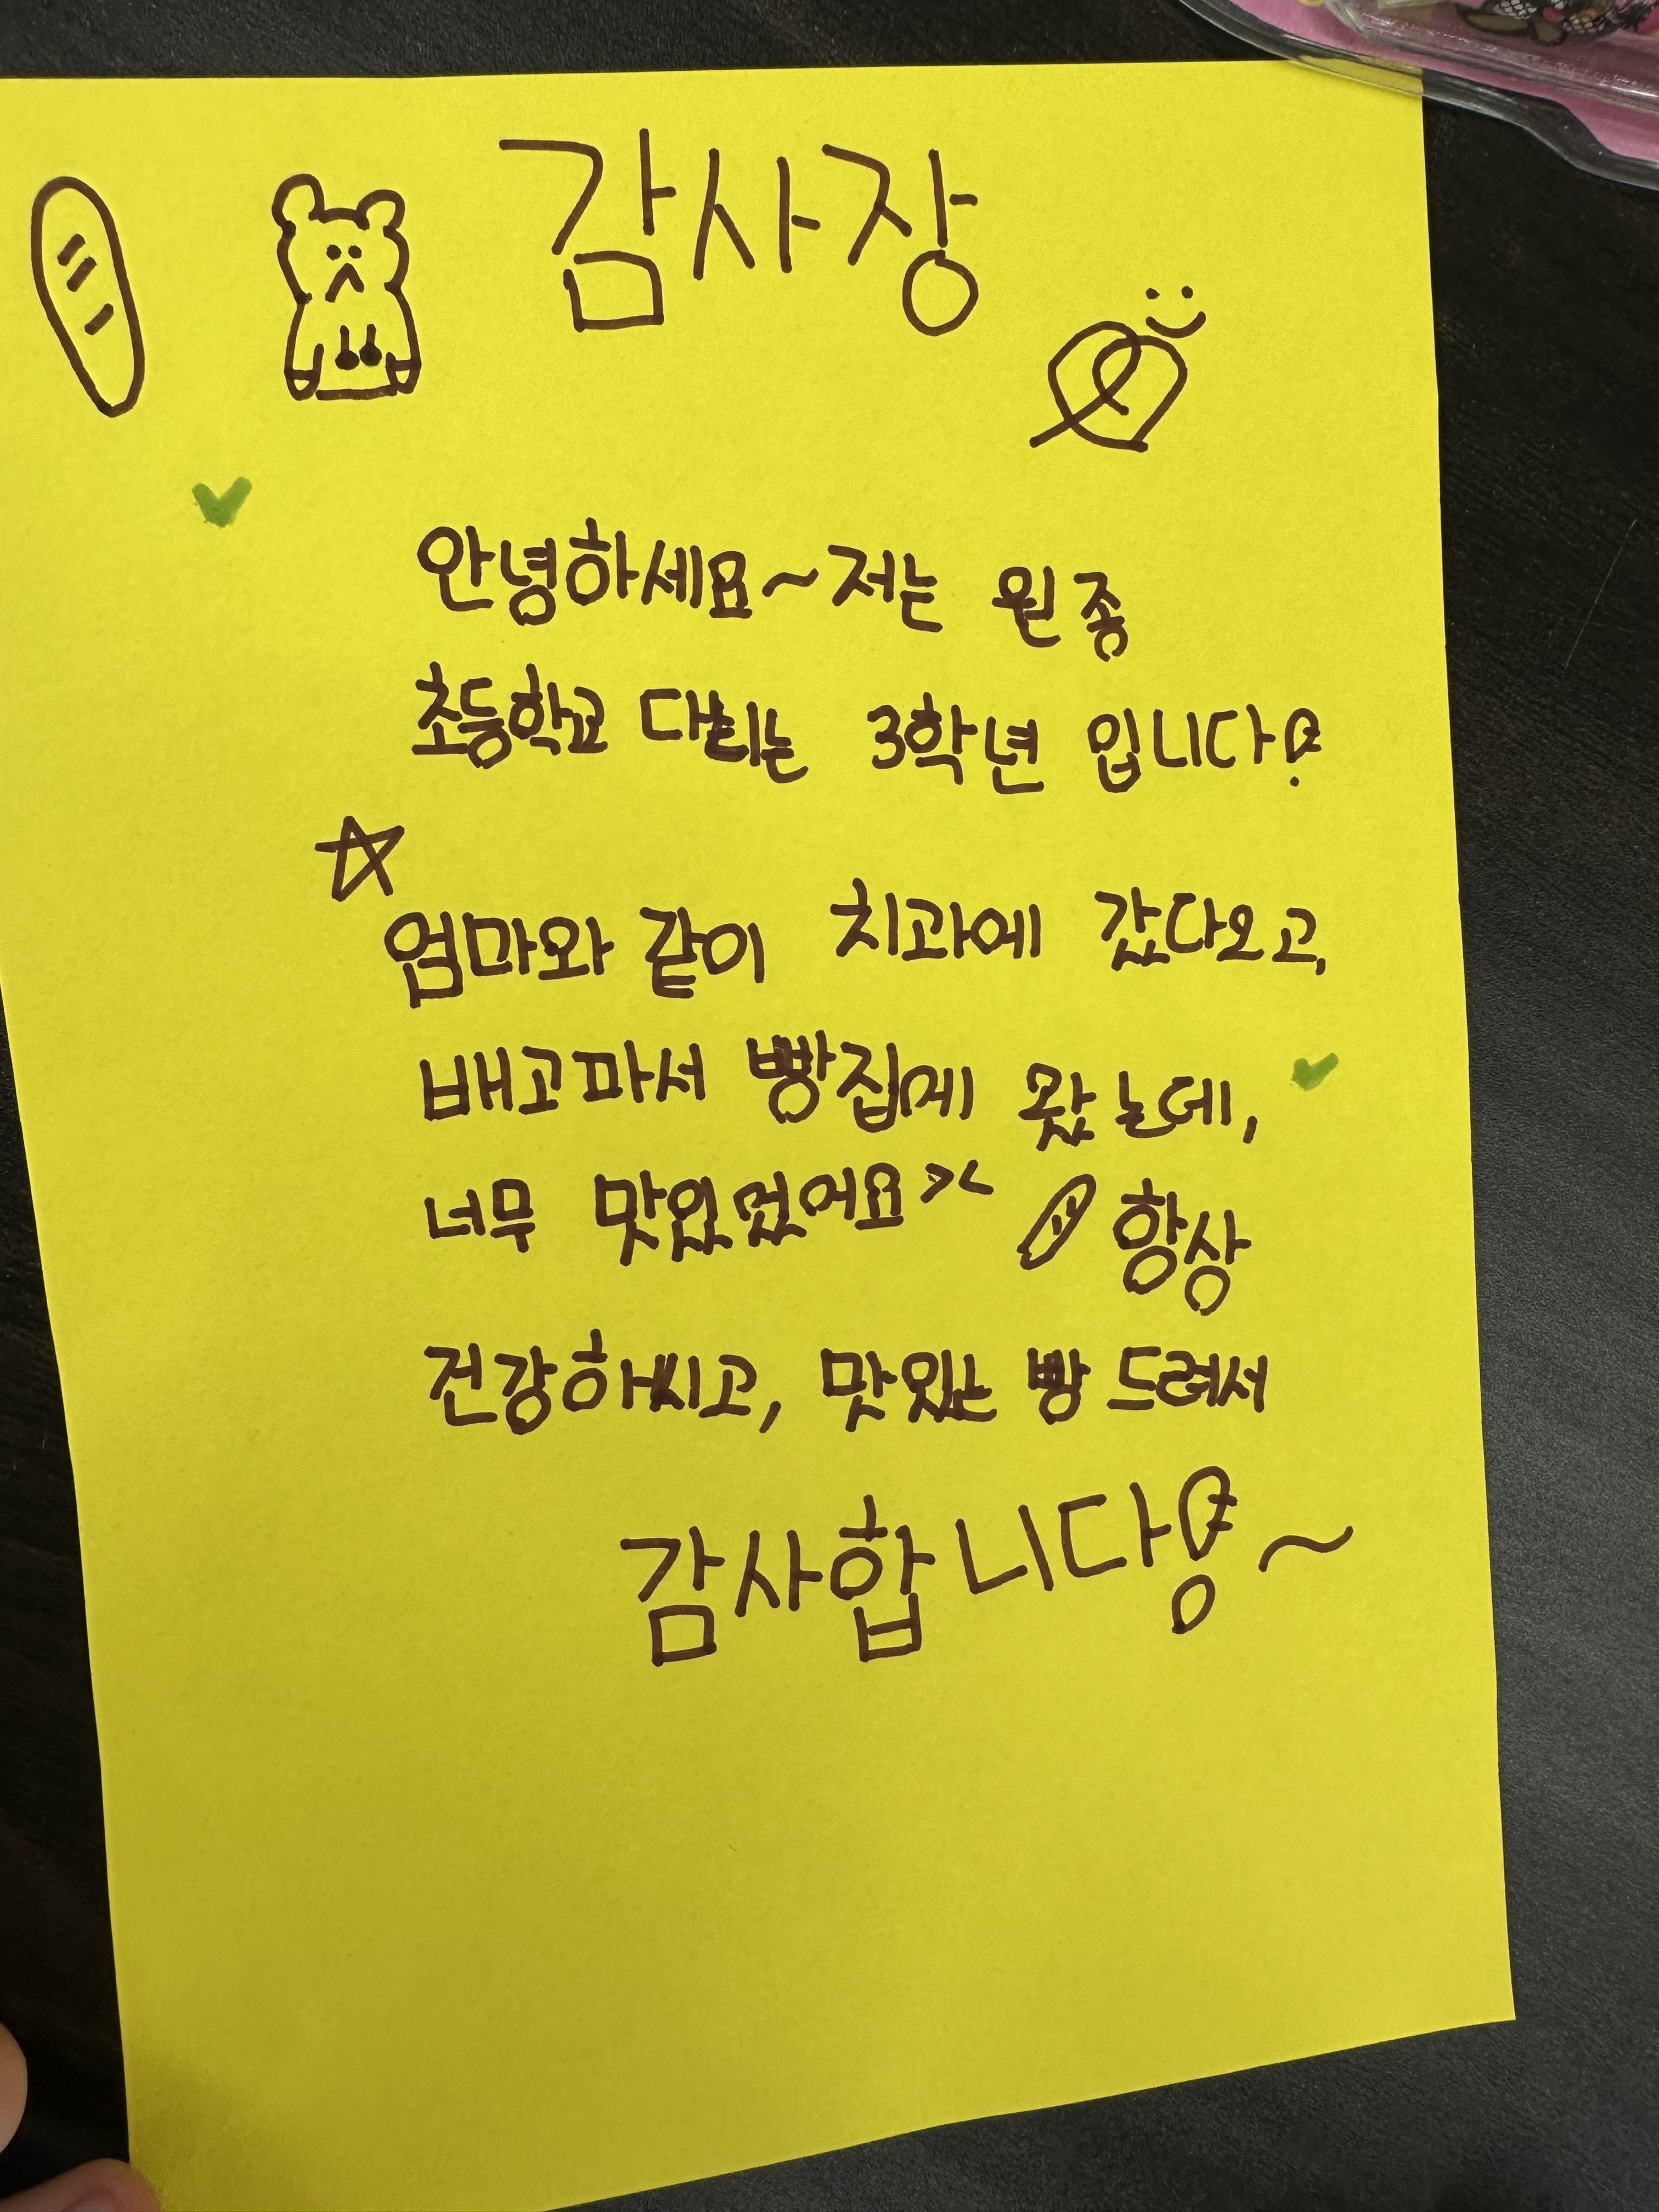 감사장
안녕하세요~저는 원종
초등학교 다니는 3학년 입니다!
엄마와 같이 치과에 갔다오고,
배고파서 빵집에 왔는데,
너무 맛있었어요>< 항상
건강하시고, 맛있는 빵 드려서
감사합니다!~